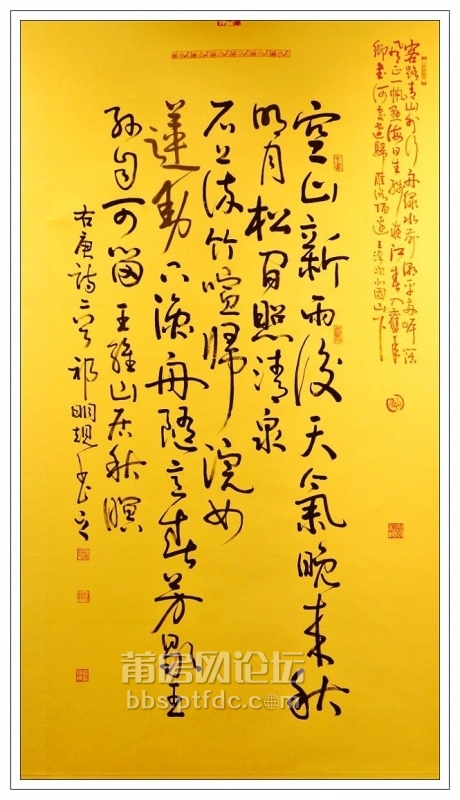 客路青山外行舟绿水前潮平两岸阔
風正一帆悬海日生残夜江春入舊年
鄉書何處達歸雁洛陽邊 王湾次北固山下
空山新雨後天氣晚来秋
明月松間照清泉
石上流竹喧歸浣女
蓮動下漁舟随意春芳歇王
孙自可留 王維山居秋暝
右唐詩二首 祁明
莆房网论坛
bbs.ptfdc.com